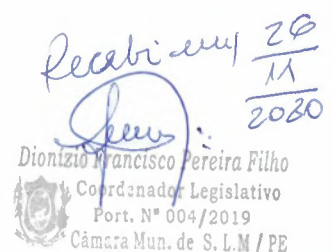 Recebi em 26
11
2020
Dionízio Francisco Pereira Filho
Coordenador Legislativo
Port. Nº 004/2019
Câmara Mun. de S. L.M / PE